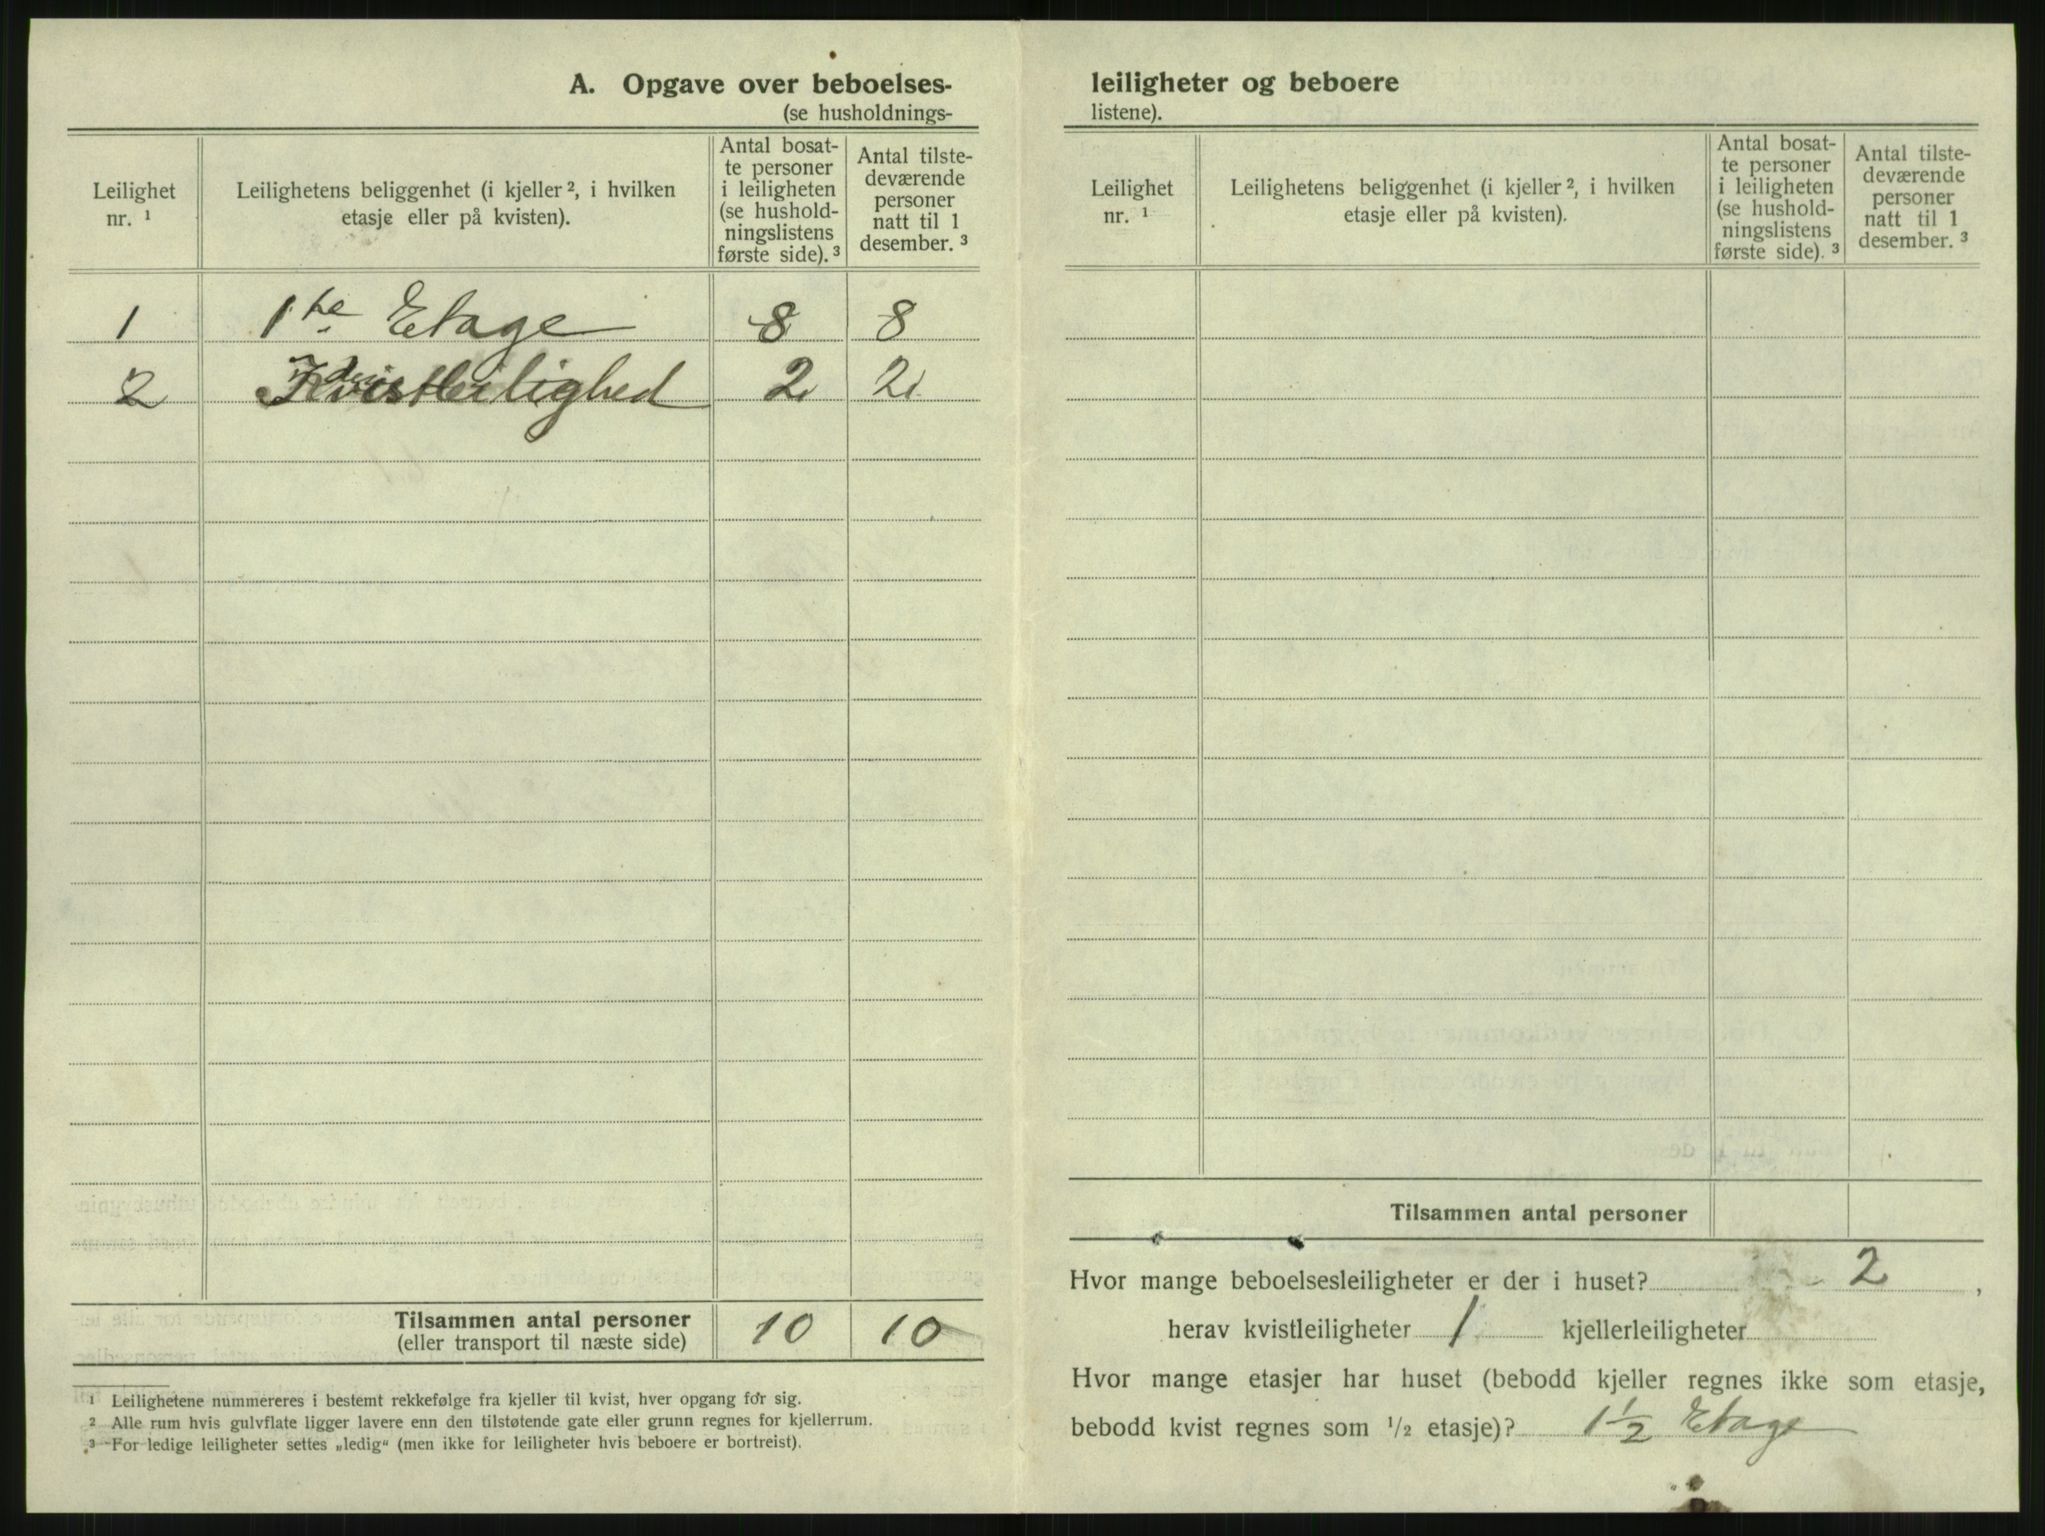 A. Opgave over beboelses-
(se husholdnings-
Leilighet nr. ¹
Leilighetens beliggenhet (i kjeller ², i hvilken etasje eller på kvisten).
Antal bosat-
te personer
i leiligheten
(se hushold-
ningslistens
første side). ³
Antal tilste-
deværende
personer
natt til 1
desember. ³
1 1te Etage 8 8
2 Kvistleilighed 2 2
Tilsammen antal personer 10 10
(eller transport til næste side)
¹ Leilighetene nummereres i bestemt rekkefølge fra kjeller til kvist, hver opgang for sig.
² Alle rum hvis gulvflate ligger lavere enn den tilstøtende gate eller grunn regnes for kjellerrum.
³ For ledige leiligheter settes „ledig“ (men ikke for leiligheter hvis beboere er bortreist).
leiligheter og beboere
listene).
Leilighet nr. ¹
Leilighetens beliggenhet (i kjeller ², i hvilken etasje eller på kvisten).
Antal bosat-
te personer
i leiligheten
(se hushold-
ningslistens
første side). ³
Antal tilste-
deværende
personer
natt til 1
desember. ³
Tilsammen antal personer
Hvor mange beboelsesleiligheter er der i huset? 2,
herav kvistleiligheter 1 kjellerleiligheter
Hvor mange etasjer har huset (bebodd kjeller regnes ikke som etasje,
bebodd kvist regnes som 1/2 etasje)? 1 1/2 Etage